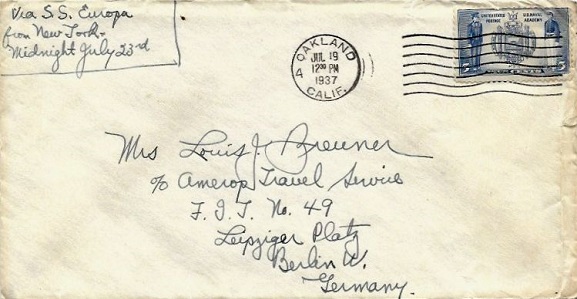 Via S.S. Europa
from New York -
Midnight July 23rd
OAKLAND
JUL 19
12 00 PM
1937
CALIF.
UNITED STATES POSTAGE
U.S. NAVAL ACADEMY
5¢ 5¢
Mrs Louis J. Breuner
c/o Amerop Travel Service
F. I. T. No. 49
Leipziger Platz
Berlin W.
Germany.